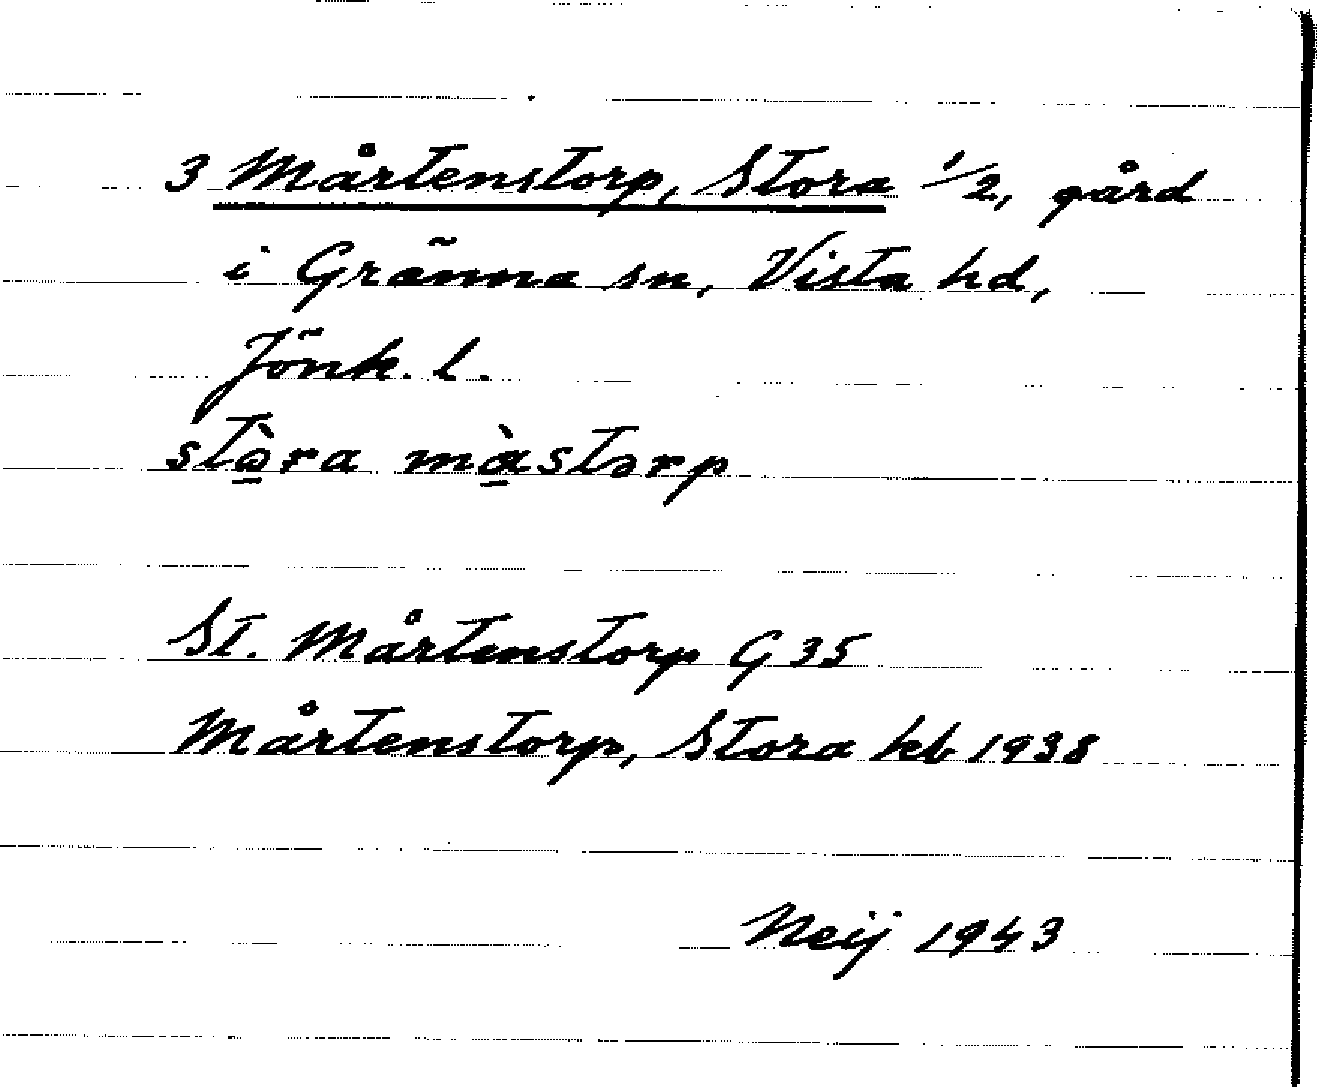 3 Mårtenstorp, Stora 1/2, gård
i Gränna sn, Vista hd,
Jönk. l.
stə̠̀ra mɑ̠̀stərp
St. Mårtenstorp G 35
Mårtenstorp, Stora kb 1938
Neij 1943